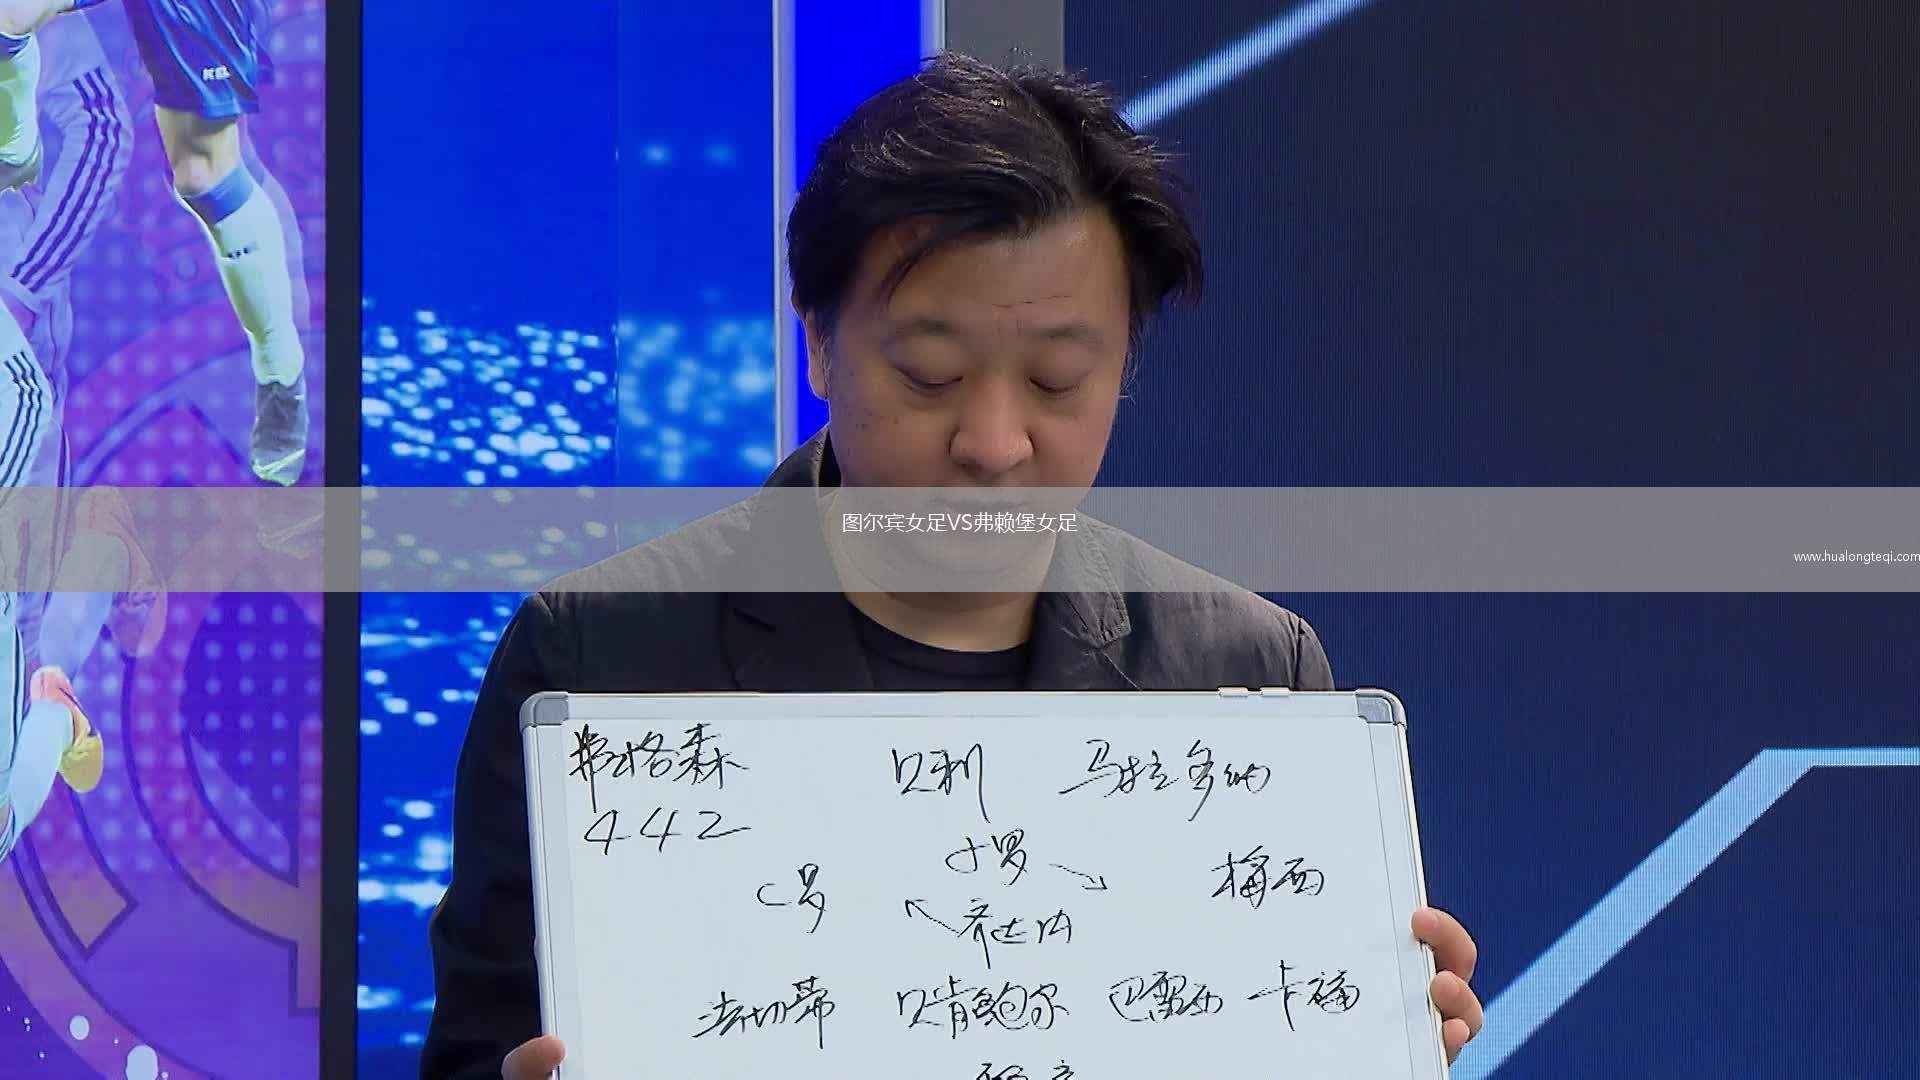 KEL
图尔宾女足VS弗赖堡女足
www.hualongteqi.com
弗格森 贝利 马拉多纳
442
小罗
C罗 梅西
齐达内
法切蒂 贝肯鲍尔 巴雷西 卡福